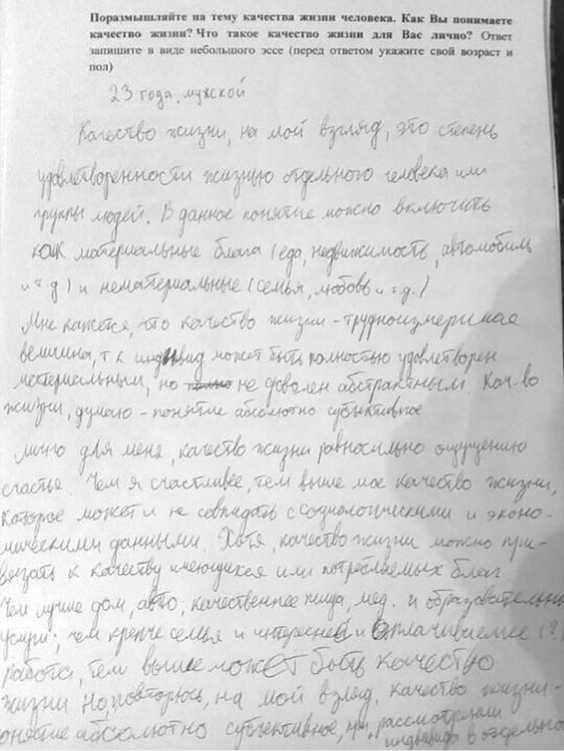 Поразмышляйте на тему качества жизни человека. Как Вы понимаете
качество жизни? Что такое качество жизни для Вас лично? Ответ
запишите в виде небольшого эссе (перед ответом укажите свой возраст и
пол)
23 года, мужской
Качество жизни, на мой взгляд, это степень
удовлетворенности жизнью отдельного человека или
группы людей. В данное понятие можно включить
как материальные блага (еда, недвижимость, автомобиль
и т д) и нематериальные (семья, любовь и т.д.)
Мне кажется, что качество жизни - трудноизмеримая
величина, т к индивид может быть полностью удовлетворен
материальным, но не доволен абстрактным. Кач-во
жизни, думаю - понятие абсолютно субъективное
лично для меня, качество жизни равносильно ощущению
счастья Чем я счастливее, тем выше мое качество жизни,
которое может и не совпадать с социологическими и эконо-
мическими данными. Хотя, качество жизни можно при-
вязать к качеству имеющихся или потребляемых благ
Чем лучше дом, авто, качественнее пища, мед. и образовательные
услуги; чем крепче семья и интересней и оплачиваемее (?)
работа, тем выше может быть качество
жизни Но, повторюсь, на мой взгляд, качество жизни -
понятие абсолютно субъективное, при рассмотрении
индивида в отдельно